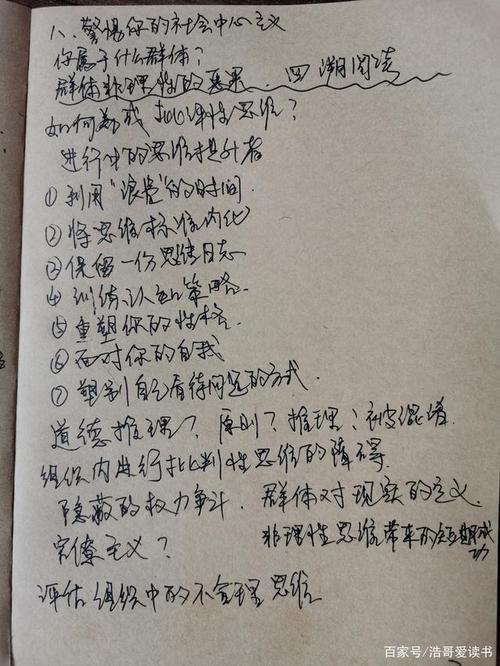 八、警惕你的社会中心主义
你属于什么群体？
群体非理性的恶果.
如何养成 批评性思维？
进行中的思维提升者
①利用“浪费”的时间.
②将思维标准内化
③保留一份思维日志
④训练认知策略.
⑤重塑你的性格.
⑥面对你的自我
⑦塑制自己看待问题的方式.
道德推理？原则？推理？被混淆.
组织内进行批判性思维的障碍.
隐蔽的权力争斗. 群体对现实的定义.
官僚主义？ 非理性思维带来的短期成功
评估组织中的不合理思维
百家号/浩哥爱读书